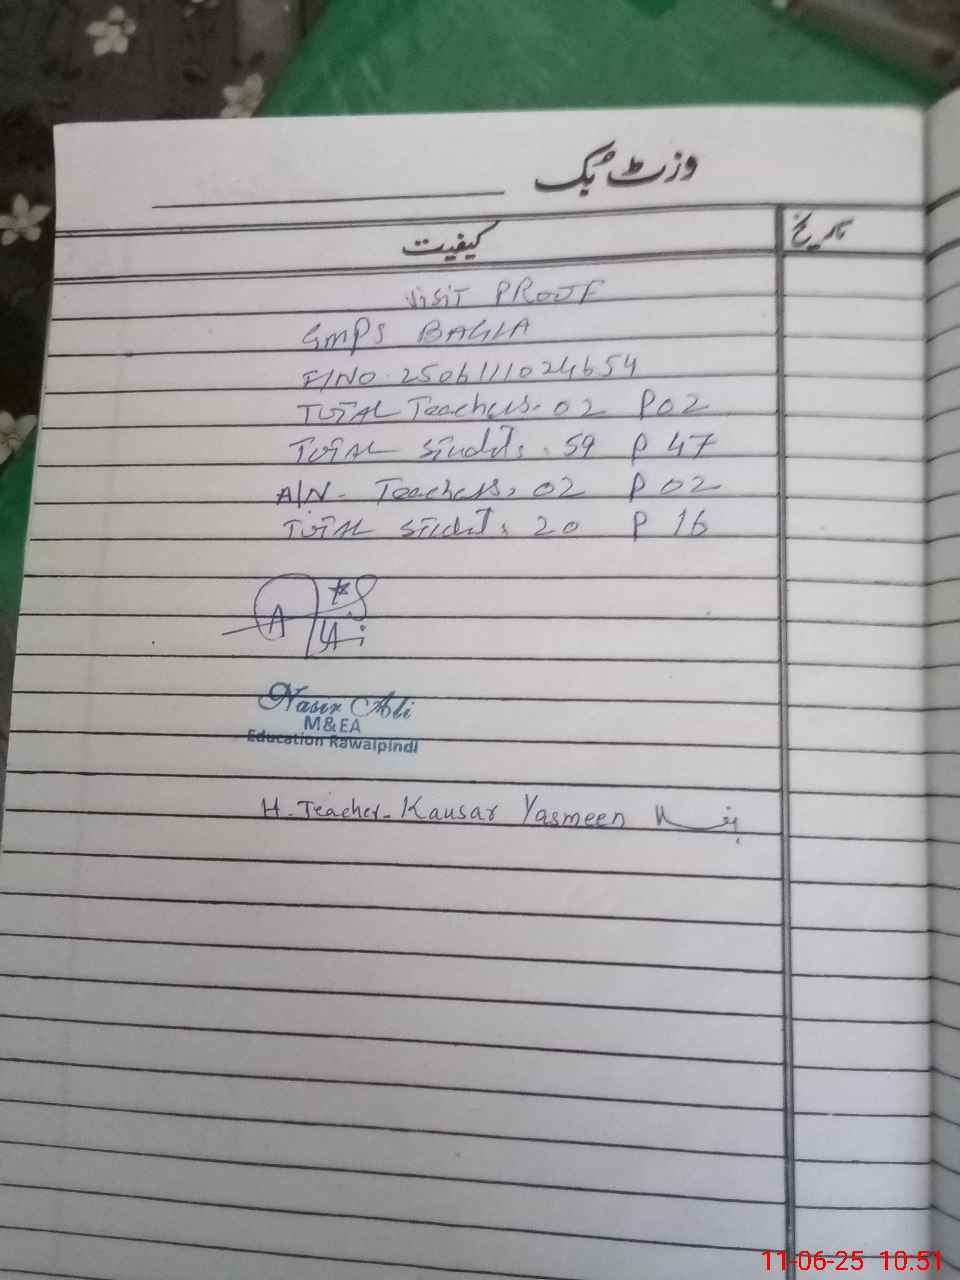 وزٹ بُک
کیفیت
تاریخ
VISIT PROOF
GMPS BAGLA
F/NO. 2506111024654
TOTAL Teachers. 02 P 02
TOTAL Students. 59 P 47
A/N- Teachers. 02 P 02
TOTAL Students. 20 P 16
Nasir Ali
M&EA
Education Rawalpindi
H. Teacher. Kausar Yasmeen
11-06-25 10:51